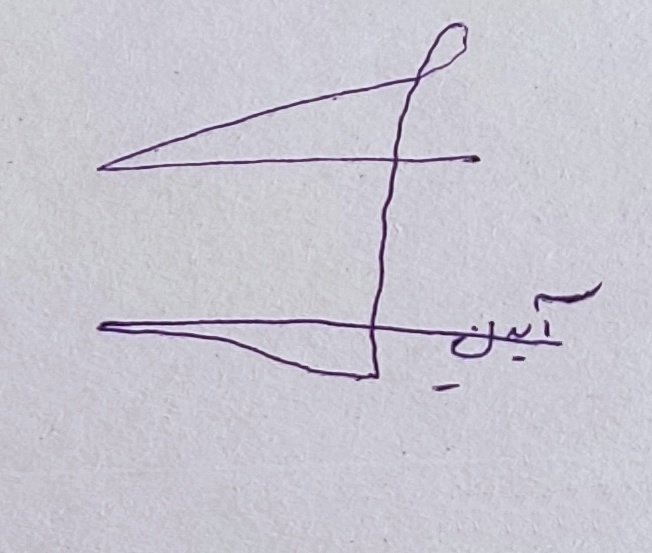 آیلین